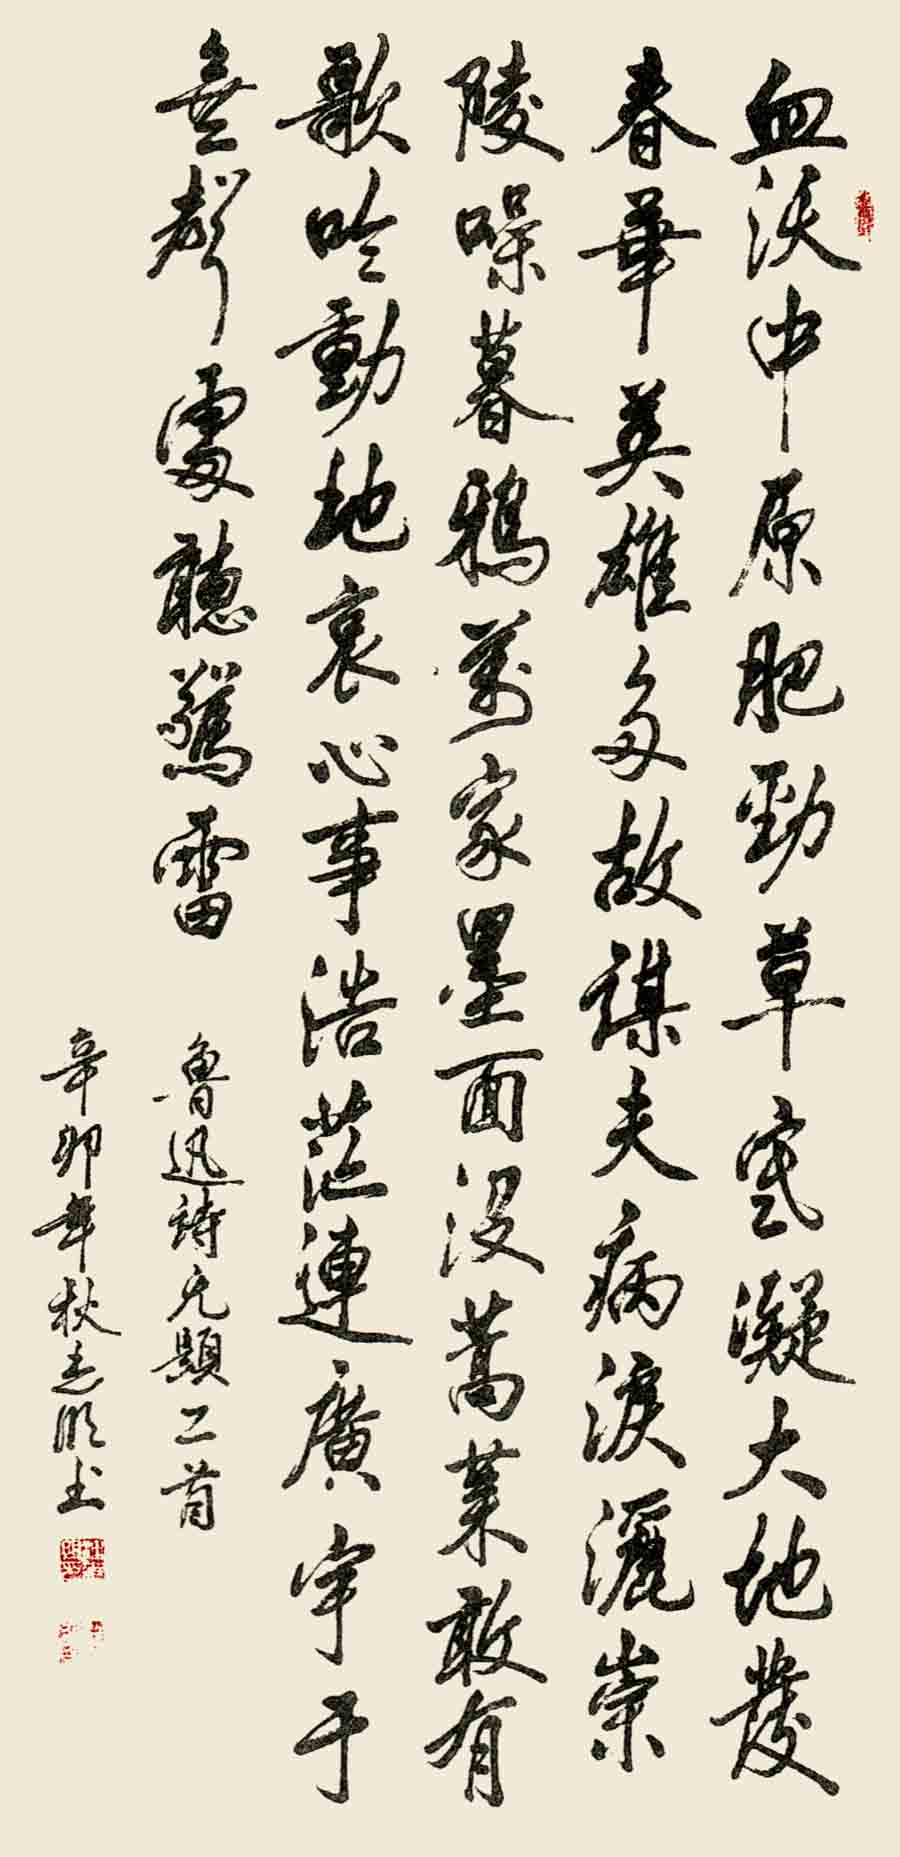 血沃中原肥勁草寒凝大地發
春華英雄多故謀夫病淚灑崇
陵噪暮鴉萬家墨面沒蒿萊敢有
歌吟動地哀心事浩茫連廣宇于
無聲處聽驚雷
魯迅詩无題二首
辛卯年秋志明书